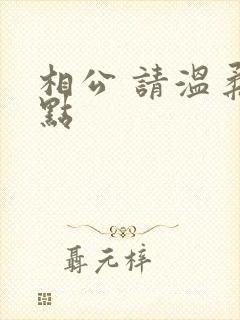 相公 請溫柔
點
聶元梓